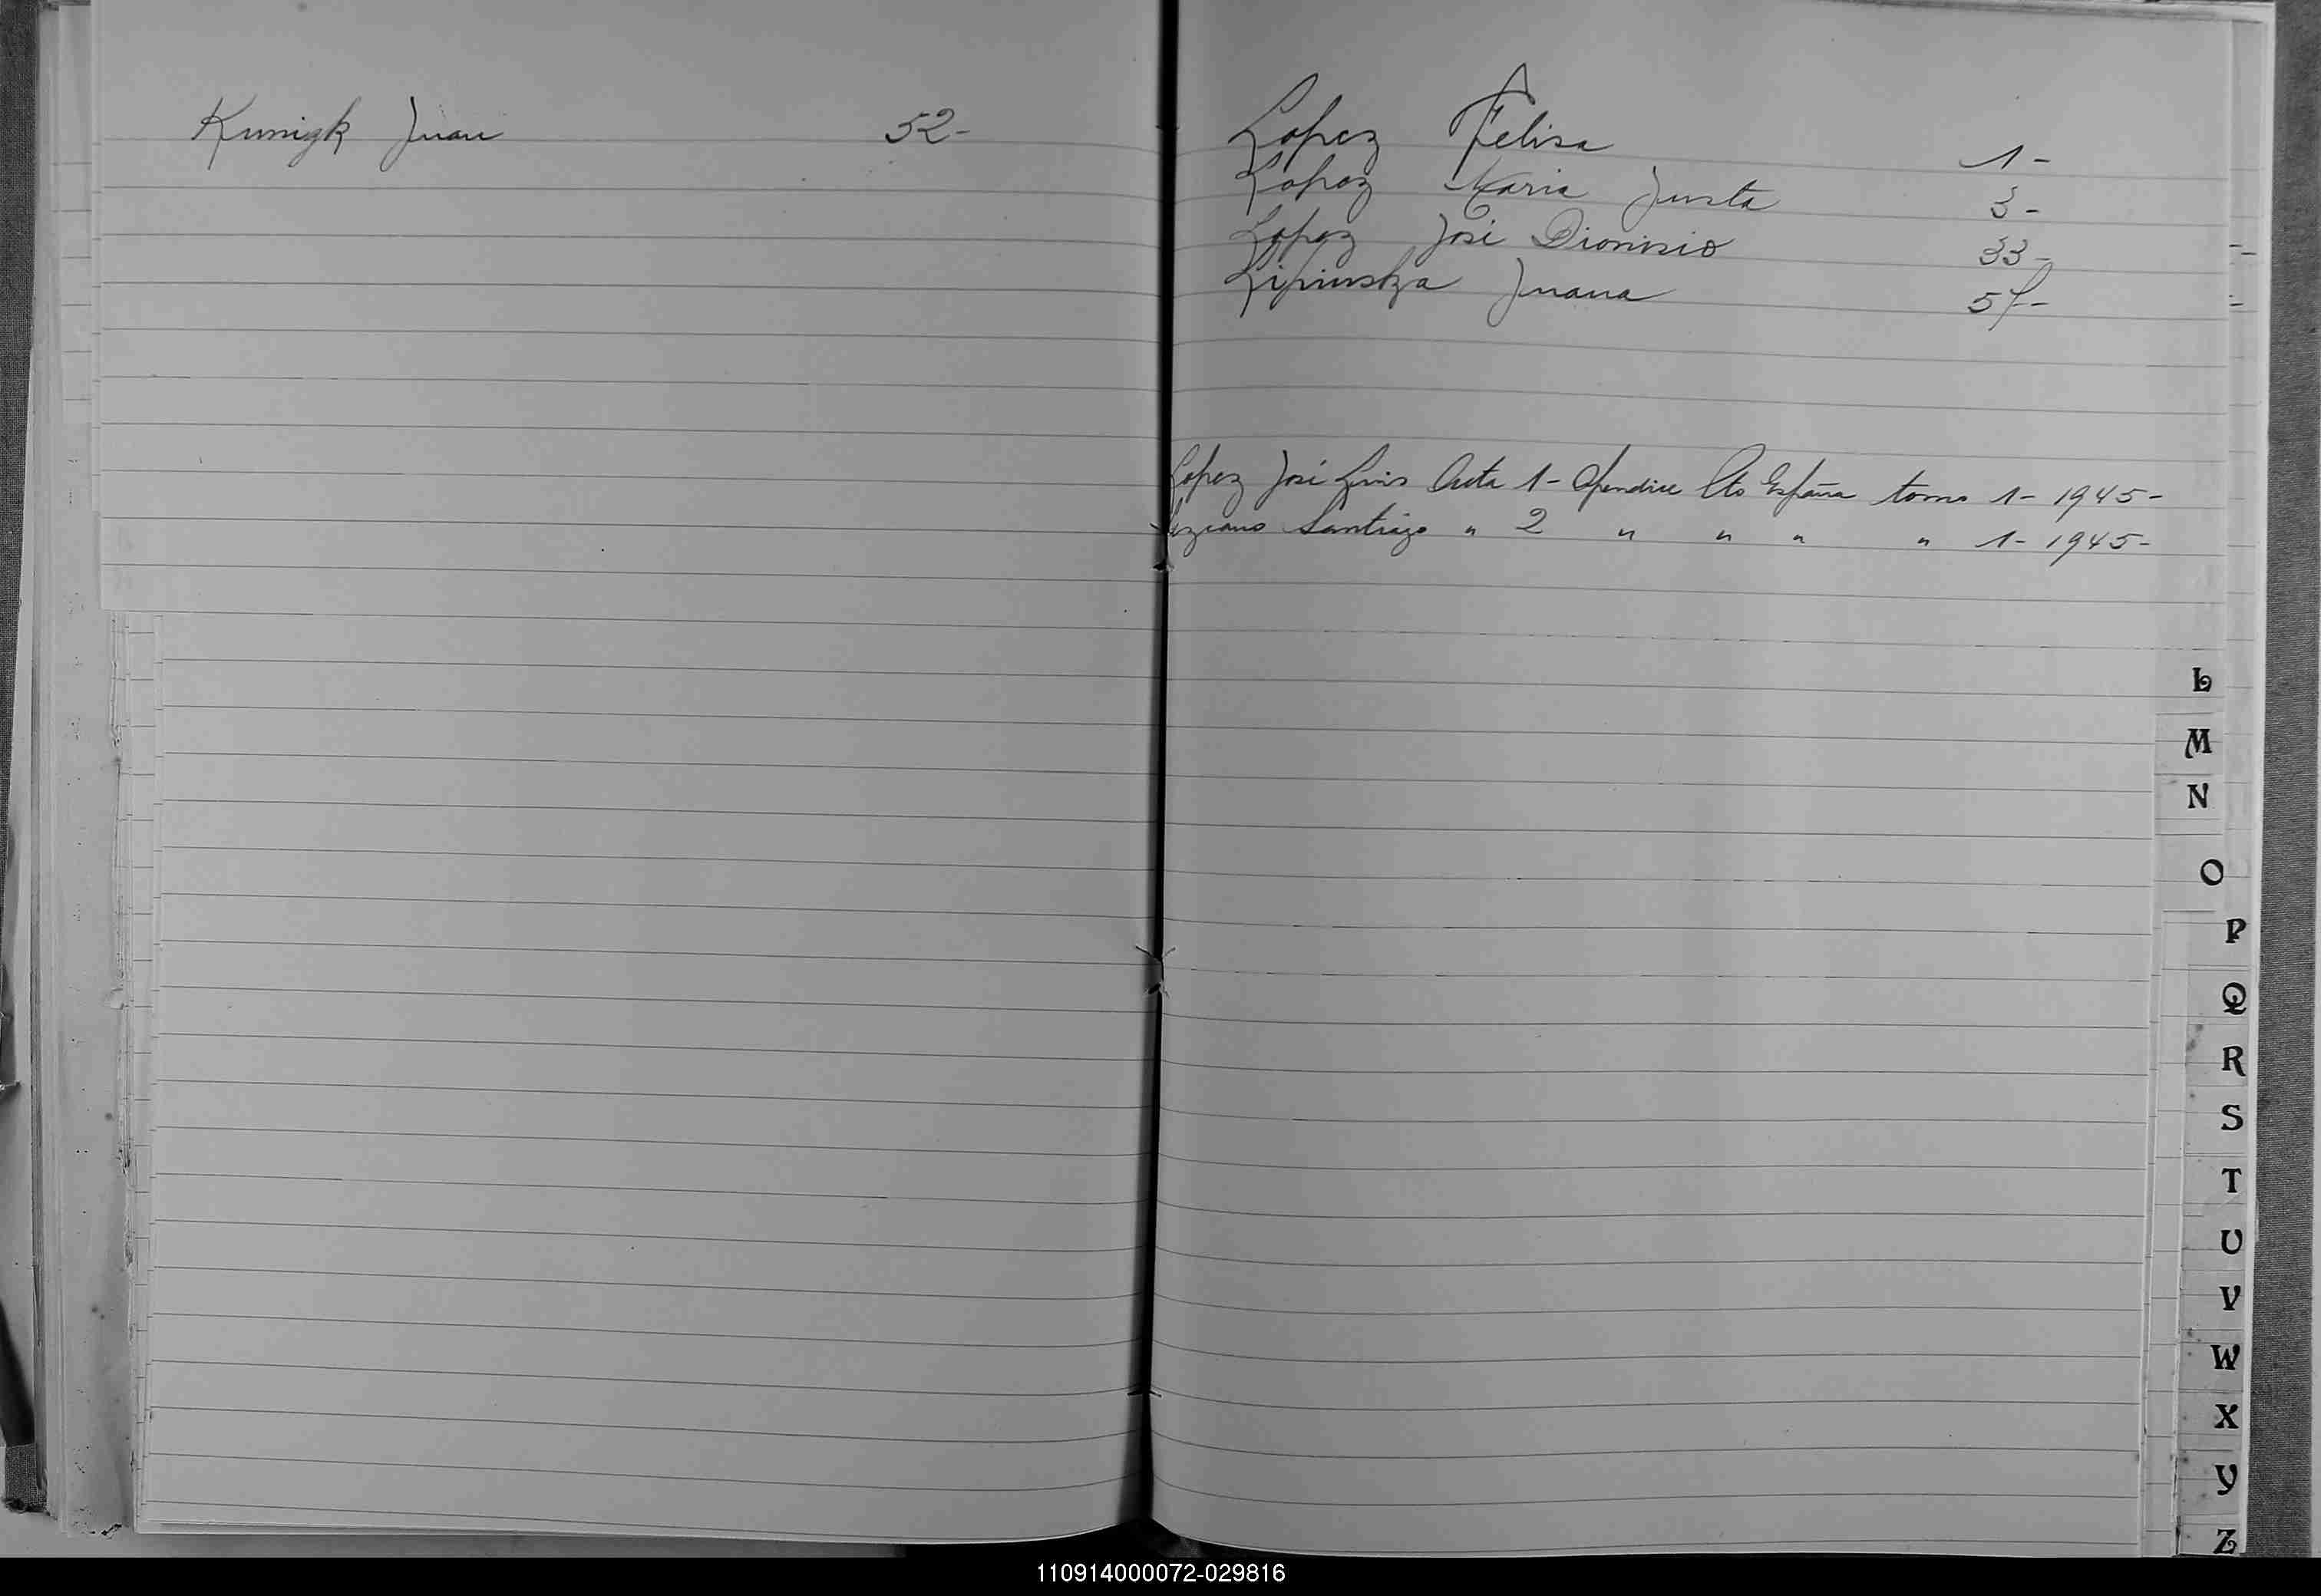 Kunigk Juan 52-
Lopez Felisa 1-
Lopez Maria Justa 3-
Lopez José Dionisio 33-
Lipinska Juana 57-
Lopez José Luis Acta 1- Apendice Cto España tomo 1- 1945-
Lezcano Santiago " 2 " " " " 1- 1945-
L
M
N
O
P
Q
R
S
T
U
V
W
X
Y
Z
110914000072-029816